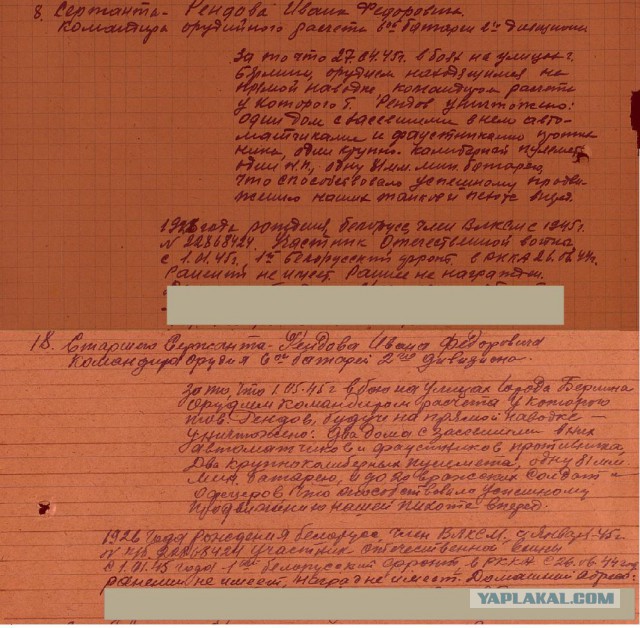 8. Сержанта - Рендова Ивана Федоровича.
Командира орудийного расчета 6ой батареи 2го дивизиона
За то что 27.04.45г. в боях на улицах г.
Берлина, орудием находящимся на
прямой наводке, командиром расчета
у которого т. Рендов уничтожено:
один дом с засевшими в нем авто-
матчиками и фаустниками против
ника, один крупно-калиберный пулемет
один Н.П., одну 81 мм. мин. батарею,
что способствовало успешному продви-
жению наших танков и пехоты вперед.
года рождения, белорус, член ВЛКСМ с 1945г.
N 22868424. Участник Отечественной войны
с 1.01.45г., 1й Белорусский фронт. в РККА 26.06.44г.
Ранений не имеет. Ранее не награжден.
18. Старшего Сержанта - Рендова Ивана Федоровича
Командира орудия 6ой батареи 2го дивизиона.
За то, что 1.05.45г. в бою на улицах города Берлина
орудием командиром расчета у которого
тов. Рендов, будучи на прямой наводке -
уничтожено: Два дома с засевшими в них
автоматчиков и фаустников противника,
Два крупнокалиберных пулемета, одну 81 мм
мин. батарею, и до вражеских солдат и
офицеров. Что способствовало успешному
продвижению нашей пехоте вперед.
1926 года рождения белорус, член ВЛКСМ, с января 45г.
N 22868424 Участник отечественной войны
с 1.01.45 года - 1ый Белорусский фронт, в РККА с 26.06.44 года
ранений не имеет, наград не имеет. Домашний адрес:
YAPLAKAL.COM